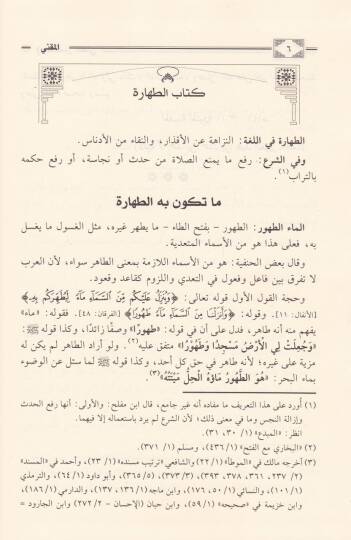 ٦
المقني
كتاب الطهارة
الطهارة في اللغة: النزاهة عن الأقذار، والنقاء من الأدناس.
وفي الشرع: رفع ما يمنع الصلاة من حدث أو نجاسة، أو رفع حكمه
بالتراب(١).
ما تكون به الطهارة
الماء الطهور: الطهور - بفتح الطاء - ما يطهر غيره، مثل الغسول ما يغسل
به، فعلى هذا هو من الأسماء المتعدية.
وقال بعض الحنفية: هو من الأسماء اللازمة بمعنى الطاهر سواء، لأن العرب
لا تفرق بين فاعل وفعول في التعدي واللزوم كقاعد وقعود.
وحجة القول الأول قوله تعالى: ﴿وَيُنَزِّلُ عَلَيْكُم مِّنَ السَّمَاءِ مَاءً لِّيُطَهِّرَكُم بِهِ﴾
[الأنفال: ١١]. وقوله: ﴿وَأَنزَلْنَا مِنَ السَّمَاءِ مَاءً طَهُورًا﴾ [الفرقان: ٤٨]. فقوله: «ماء»
يفهم منه أنه طاهر، فدل على أن في قوله: «طهورًا» وصفًا زائدًا، وكذا قوله ﷺ:
«وَجُعِلَتْ لِي الأَرْضُ مَسْجِدًا وَطَهُورًا» متفق عليه(٢). ولو أراد الطاهر لم يكن له
مزية على غيره؛ لأنه طاهر في حق كل أحد، وكذا قوله ﷺ لما سئل عن الوضوء
بماء البحر: «هُوَ الطَّهُورُ مَاؤُهُ الْحِلُّ مَيْتَتُهُ»(٣).
(١) أورد على هذا التعريف ما مفاده أنه غير جامع، قال ابن مفلح: والأولى: أنها رفع الحدث
وإزالة النجس وما في معنى ذلك؛ لأن الشرع لم يرد باستعماله إلا فيهما.
انظر: «المبدع» (١/ ٣٠، ٣١).
(٢) «البخاري مع الفتح» (١/ ٤٣٦)، ومسلم (١/ ٣٧١).
(٣) أخرجه مالك في «الموطأ» (١/ ٢٢) والشافعي «ترتيب مسنده» (١/ ٢٣)، وأحمد في «المسند»
(٢/ ٢٣٧، ٣٦١، ٣٧٨، ٣٩٣)، (٣/ ٣٧٣)، (٥/ ٣٦٥)، وأبو داود (١/ ٦٤)، والترمذي
(١/ ١٠١)، والنسائي (١/ ٥٠، ١٧٦)، وابن ماجه (١/ ١٣٦، ١٣٧)، والدارمي (١/ ١٨٦)،
وابن خزيمة في «صحيحه» (١/ ٥٩)، وابن حبان (الإحسان - ٢/ ٢٧٢) وابن الجارود =